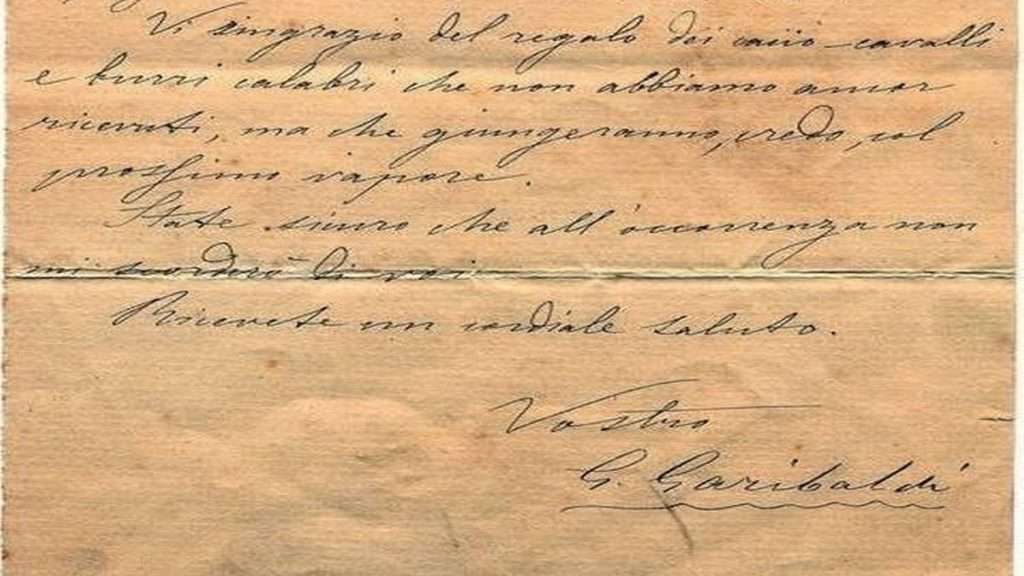 Vi ringrazio del regalo dei cacio-cavalli
e burri calabri che non abbiamo ancor
ricevuti, ma che giungeranno, credo, col
prossimo vapore.
State sicuro che all'occorrenza non
mi scorderò di voi.
Ricevete un cordiale saluto.
Vostro
G. Garibaldi